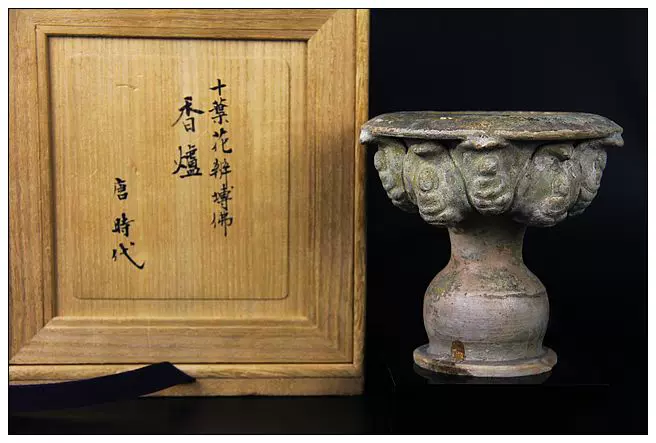 十葉花辧塼佛
香爐
唐時代